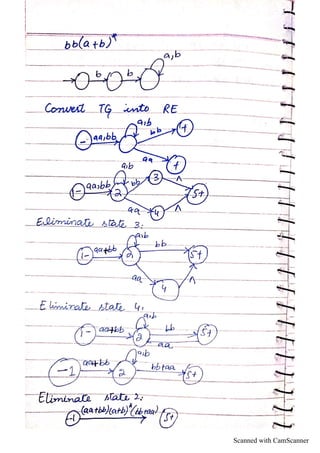 bb(a+b)*
a,b
b b
Convert TG into RE
a,b
- aa,bb bb +
aa +
a,b 3 Λ
1- aa,bb 2 bb 5+
aa 4 Λ
Eliminate state 3:
a,b
bb
1- aa+bb 2 5+
aa Λ
4
Eliminate state 4:
a,b
1- aa+bb 2 bb 5+
aa
a,b
-1 aa+bb 2 bb+aa 5+
Eliminate state 2:
-1 (aa+bb)(a+b)*(bb+aa) 5+
Scanned with CamScanner